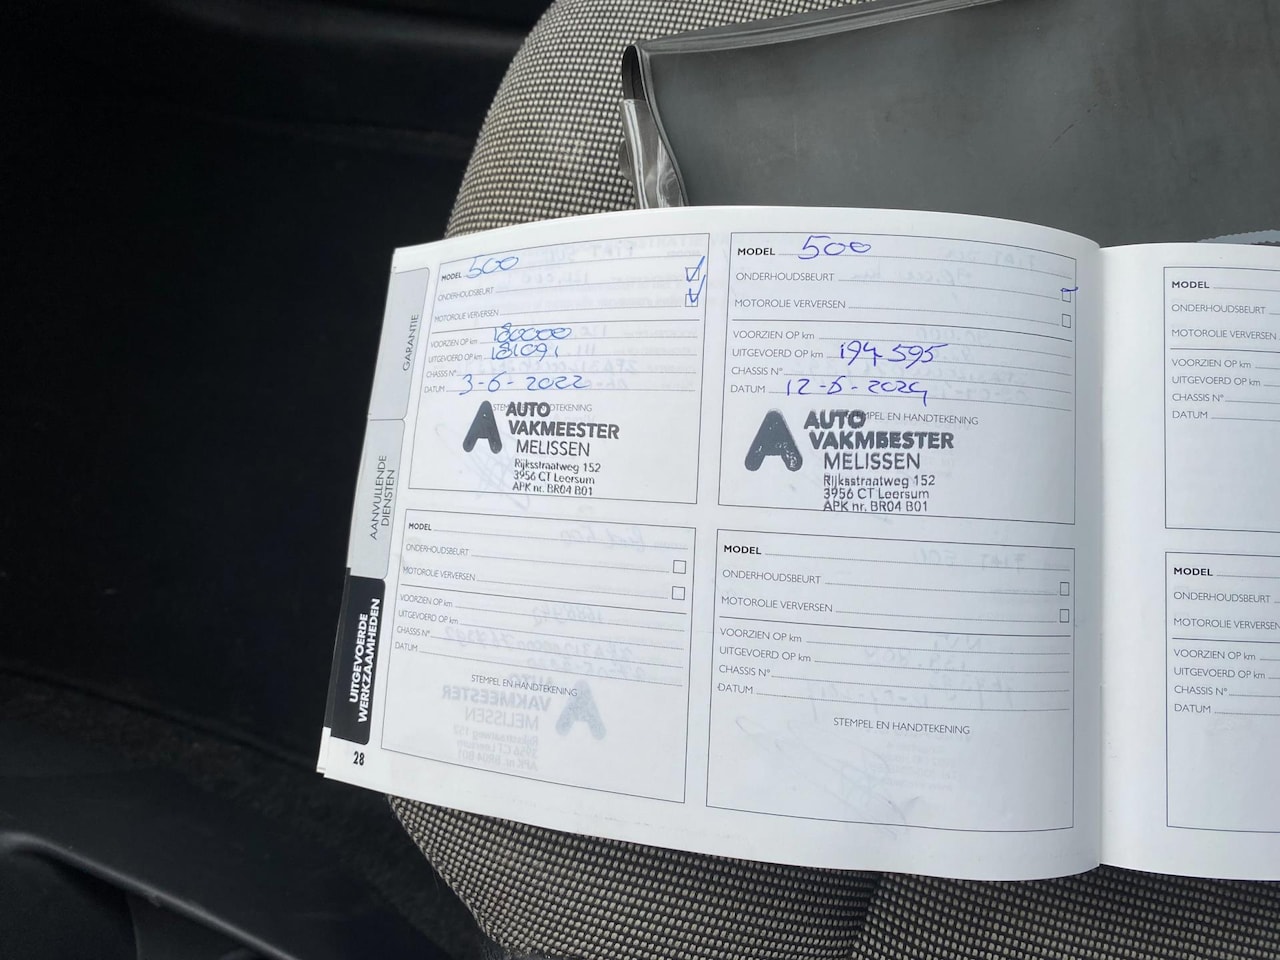 GARANTIE
AANVULLENDE
DIENSTEN
UITGEVOERDE
WERKZAAMHEDEN
28
MODEL 500
ONDERHOUDSBEURT
MOTOROLIE VERVERSEN
VOORZIEN OP km 180000
UITGEVOERD OP km 181091
CHASSIS N°
DATUM 3-6-2022
STEMPEL EN HANDTEKENING
AUTO
VAKMEESTER
MELISSEN
Rijksstraatweg 152
3956 CT Leersum
APK nr. BR04 B01
MODEL 500
ONDERHOUDSBEURT
MOTOROLIE VERVERSEN
VOORZIEN OP km
UITGEVOERD OP km 194595
CHASSIS N°
DATUM 12-6-2024
STEMPEL EN HANDTEKENING
AUTO
VAKMEESTER
MELISSEN
Rijksstraatweg 152
3956 CT Leersum
APK nr. BR04 B01
MODEL
ONDERHOUDSBEURT
MOTOROLIE VERVERSEN
VOORZIEN OP km
UITGEVOERD OP km
CHASSIS N°
DATUM
STEMPEL EN HANDTEKENING
MODEL
ONDERHOUDSBEURT
MOTOROLIE VERVERSEN
VOORZIEN OP km
UITGEVOERD OP km
CHASSIS N°
DATUM
STEMPEL EN HANDTEKENING
MODEL
ONDERHOUDSBEURT
MOTOROLIE VERVERSEN
VOORZIEN OP km
UITGEVOERD OP km
CHASSIS N°
DATUM
MODEL
ONDERHOUDSBEURT
MOTOROLIE VERVERSEN
VOORZIEN OP km
UITGEVOERD OP km
CHASSIS N°
DATUM